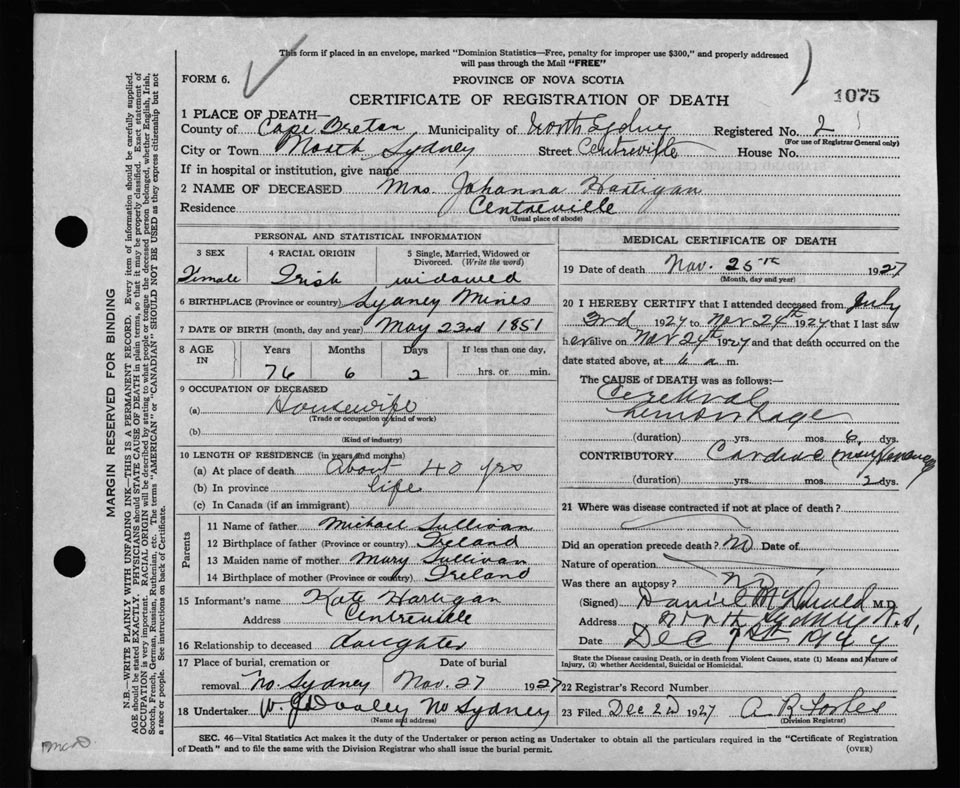 This form if placed in an envelope, marked "Dominion Statistics—Free, penalty for improper use $300," and properly addressed
will pass through the Mail "FREE"
FORM 6.
PROVINCE OF NOVA SCOTIA
CERTIFICATE OF REGISTRATION OF DEATH
1075
1 PLACE OF DEATH—
County of Cape Breton Municipality of North Sydney Registered No. 2
(For use of Registrar General only)
City or Town North Sydney Street Centreville House No.
If in hospital or institution, give name
2 NAME OF DECEASED Mrs Johanna Hartigan
Residence Centreville
(Usual place of abode)
PERSONAL AND STATISTICAL INFORMATION
3 SEX 4 RACIAL ORIGIN 5 Single, Married, Widowed or Divorced. (Write the word)
Female Irish widowed
6 BIRTHPLACE (Province or country) Sydney Mines
7 DATE OF BIRTH (month, day and year) May 23rd 1851
8 AGE IN Years Months Days If less than one day,
76 6 2 hrs. or min.
9 OCCUPATION OF DECEASED
(a) Housewife
(Trade or occupation or kind of work)
(b)
(Kind of industry)
10 LENGTH OF RESIDENCE (in years and months)
(a) At place of death About 40 yrs
(b) In province life
(c) In Canada (if an immigrant)
Parents
11 Name of father Michael Sullivan
12 Birthplace of father (Province or country) Ireland
13 Maiden name of mother Mary Sullivan
14 Birthplace of mother (Province or country) Ireland
15 Informant's name Kate Hartigan
Address Centreville
16 Relationship to deceased daughter
17 Place of burial, cremation or Date of burial
removal No. Sydney Nov. 27 1927
18 Undertaker W. J. Dooley No Sydney
(Name and address)
MEDICAL CERTIFICATE OF DEATH
19 Date of death Nov. 25th 1927
(Month, day and year)
20 I HEREBY CERTIFY that I attended deceased from July
3rd 1927 to Nov 24th 1927 that I last saw
her alive on Nov 24th 1927 and that death occurred on the
date stated above, at 6 a m.
The CAUSE of DEATH was as follows:—
Cerebral
hemorrhage
(duration) yrs. mos. 6 dys.
CONTRIBUTORY Cardiac
(duration) yrs. mos. 2 dys.
21 Where was disease contracted if not at place of death?
Did an operation precede death? No Date of
Nature of operation
Was there an autopsy? No
(Signed) Daniel McDonald M.D.
Address North Sydney N.S.
Date Dec 1st 1927
State the Disease causing Death, or in death from Violent Causes, state (1) Means and Nature of
Injury, (2) whether Accidental, Suicidal or Homicidal.
22 Registrar's Record Number
23 Filed Dec 2nd 1927 A R Forbes
(Division Registrar)
SEC. 46—Vital Statistics Act makes it the duty of the Undertaker or person acting as Undertaker to obtain all the particulars required in the "Certificate of Registration
of Death" and to file the same with the Division Registrar who shall issue the burial permit.
(OVER)
MARGIN RESERVED FOR BINDING
N.B.—WRITE PLAINLY WITH UNFADING INK—THIS IS A PERMANENT RECORD. Every item of information should be carefully supplied.
AGE should be stated EXACTLY. PHYSICIANS should STATE CAUSE OF DEATH in plain terms, so that it may be properly classified. Exact statement of
OCCUPATION is very important. RACIAL ORIGIN will be described by stating to what people or tongue the deceased person belonged, whether English, Irish,
Scotch, French, German, Russian, Ruthenian, etc. The terms "AMERICAN" or "CANADIAN" SHOULD NOT BE USED as they express citizenship but not
a race or people. See instructions on back of Certificate.